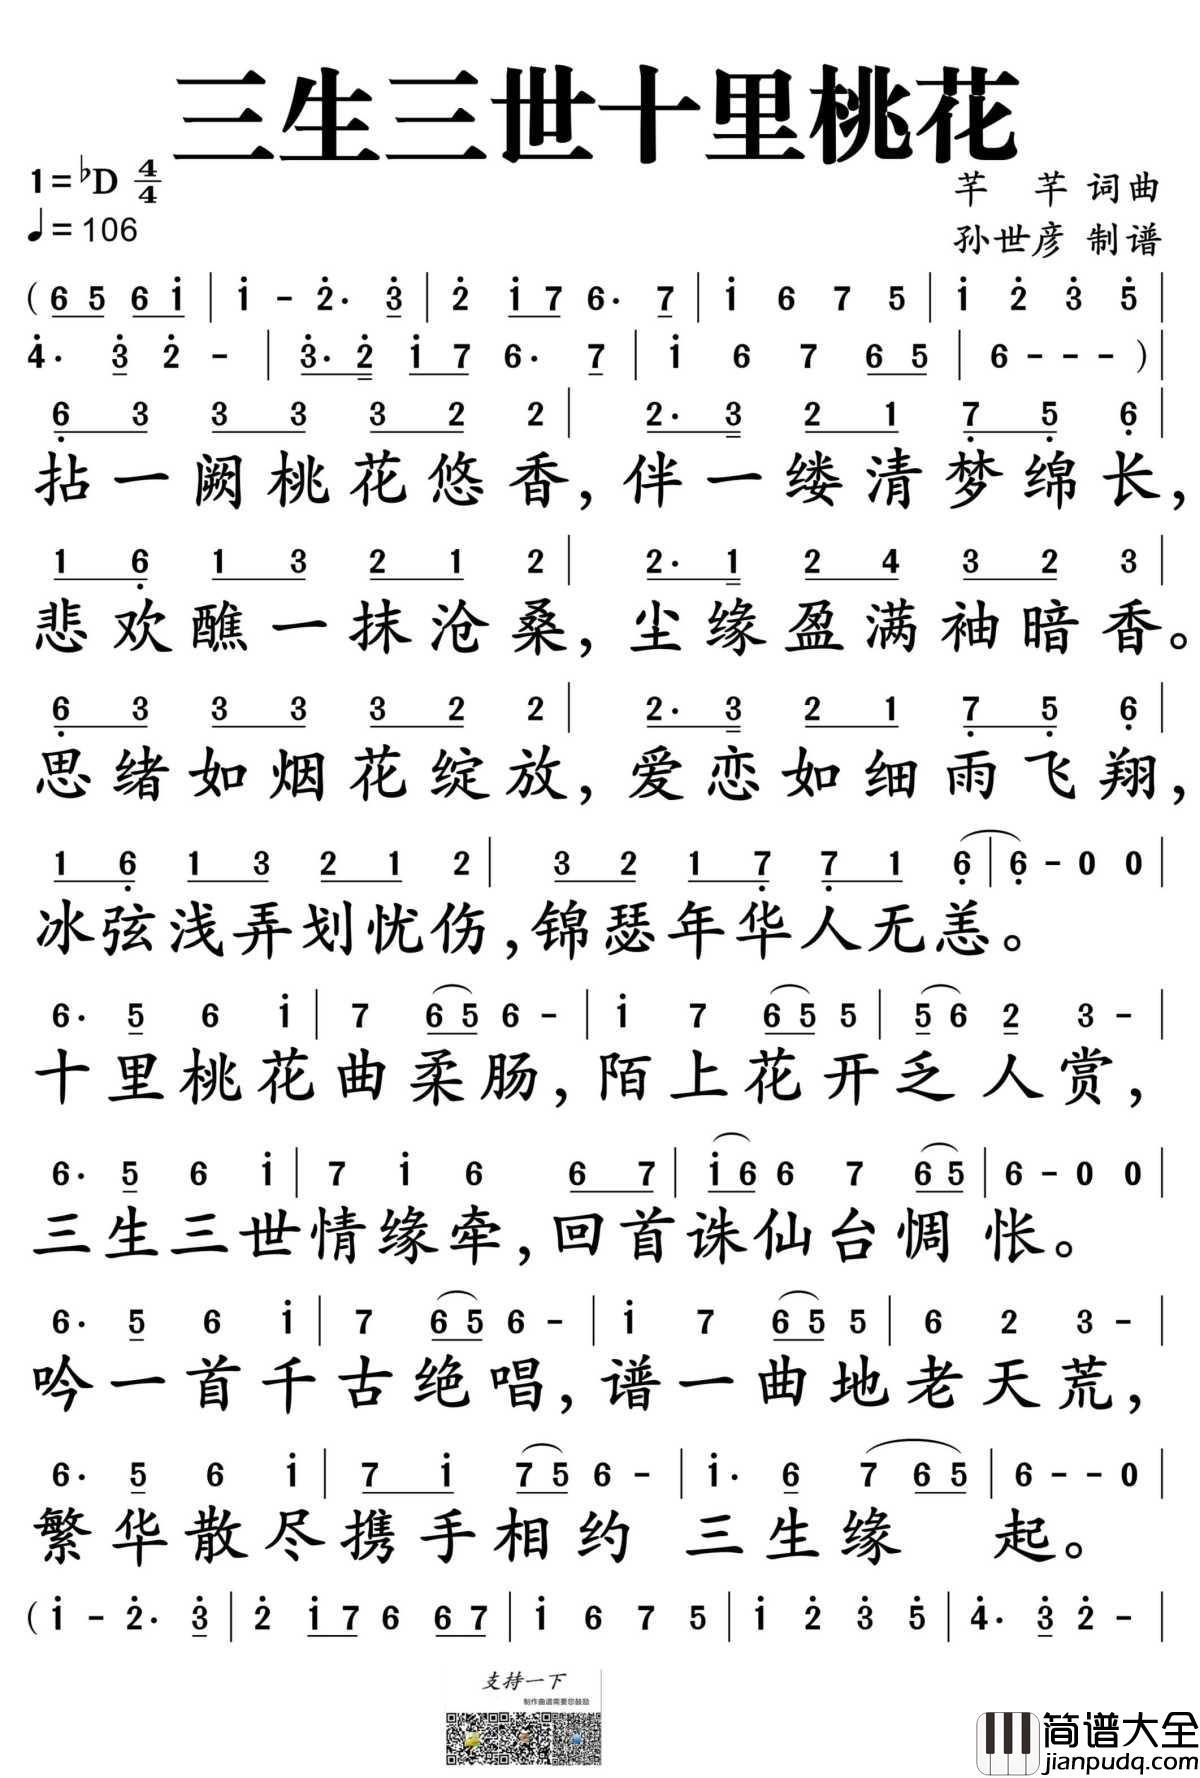 三生三世十里桃花
1=♭D 4/4
♩=106
芊 芊 词曲
孙世彦 制谱
( 6 5 6 i | i - 2̇· 3̇ | 2̇ i 7 6· 7 | i 6 7 5 | i 2̇ 3̇ 5̇ |
4̇· 3̇ 2̇ - | 3̇· 2̇ i 7 6· 7 | i 6 7 6 5 | 6 - - - ) |
6̣ 3 3 3 3 2 2 | 2· 3 2 1 7̣ 5̣ 6̣ |
拈一阙桃花悠香，伴一缕清梦绵长，
1 6̣ 1 3 2 1 2 | 2· 1 2 4 3 2 3 |
悲欢醮一抹沧桑，尘缘盈满袖暗香。
6̣ 3 3 3 3 2 2 | 2· 3 2 1 7̣ 5̣ 6̣ |
思绪如烟花绽放，爱恋如细雨飞翔，
1 6̣ 1 3 2 1 2 | 3 2 1 7̣ 7̣ 1 6̣ | 6̣ - 0 0 |
冰弦浅弄划忧伤，锦瑟年华人无恙。
6· 5 6 i | 7 6 5 6 - | i 7 6 5 5 | 5 6 2 3 - |
十里桃花曲柔肠，陌上花开乏人赏，
6· 5 6 i | 7 i 6 6 7 | i 6 6 7 6 5 | 6 - 0 0 |
三生三世情缘牵，回首诛仙台惆怅。
6· 5 6 i | 7 6 5 6 - | i 7 6 5 5 | 6 2 3 - |
吟一首千古绝唱，谱一曲地老天荒，
6· 5 6 i | 7 i 7 5 6 - | i· 6 7 6 5 | 6 - - 0 |
繁华散尽携手相约 三生缘 起。
( i - 2̇· 3̇ | 2̇ i 7 6 6 7 | i 6 7 5 | i 2̇ 3̇ 5̇ | 4̇· 3̇ 2̇ - |
支持一下
制作曲谱需要您鼓励
简谱大全
jianpudq.com